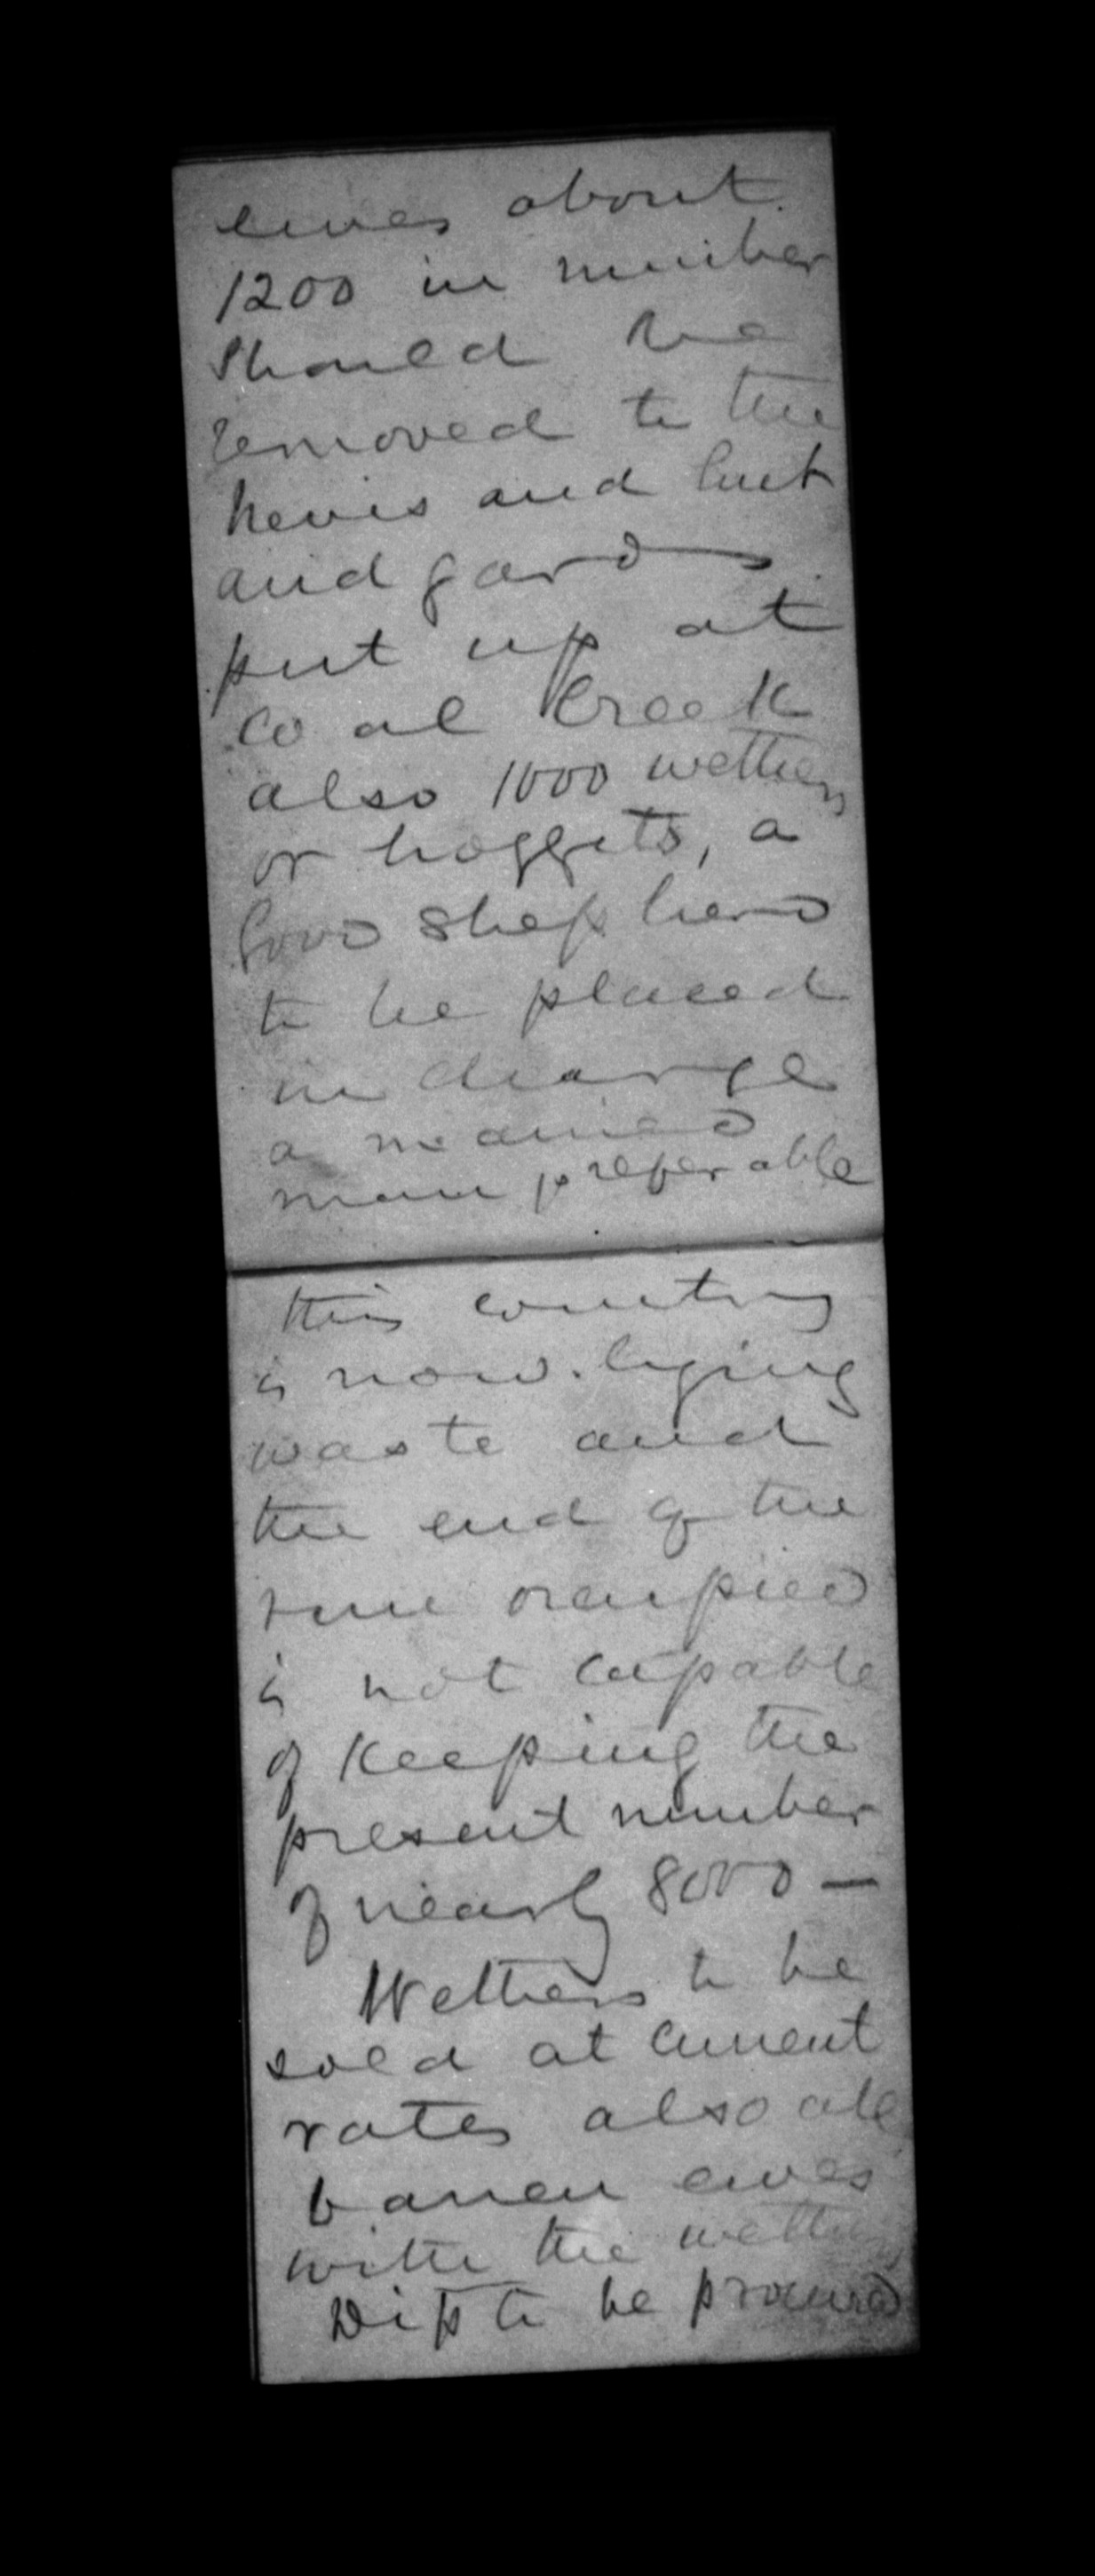 ewes about
1200 in number
should be
removed to the
Nevis and hut
and yards
put up at
Coal Creek
also 1000 wethers
or hoggets, a
good shepherd
to be placed
in charge
a married
man preferable
this country
is now lying
waste and
the end of the
run occupied
is not capable
of keeping the
present number
of nearly 8000 —
Wethers to be
sold at current
rates also all
barren ewes
with the wethers
Dip to be procured